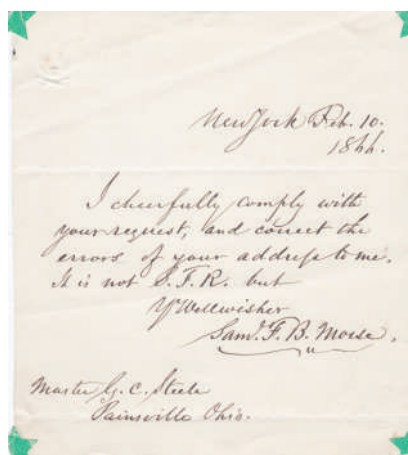 New York Feb. 10.
1864.
I cheerfully comply with
your request, and correct the
errors of your address to me.
It is not S. F. R. but
Yr Wellwisher
Saml. F. B. Morse.
Master G. C. Steele
Painsville Ohio.